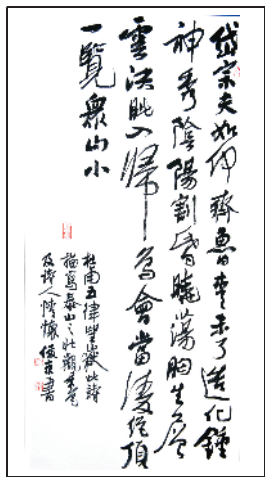 岱宗夫如何齊魯青未了造化鍾
神秀陰陽割昏曉蕩胸生層
雲決眥入歸鳥會當凌絕頂
一覽眾山小
杜甫五律望嶽此詩
描寫泰山之壯觀景色
及詩人情懷書